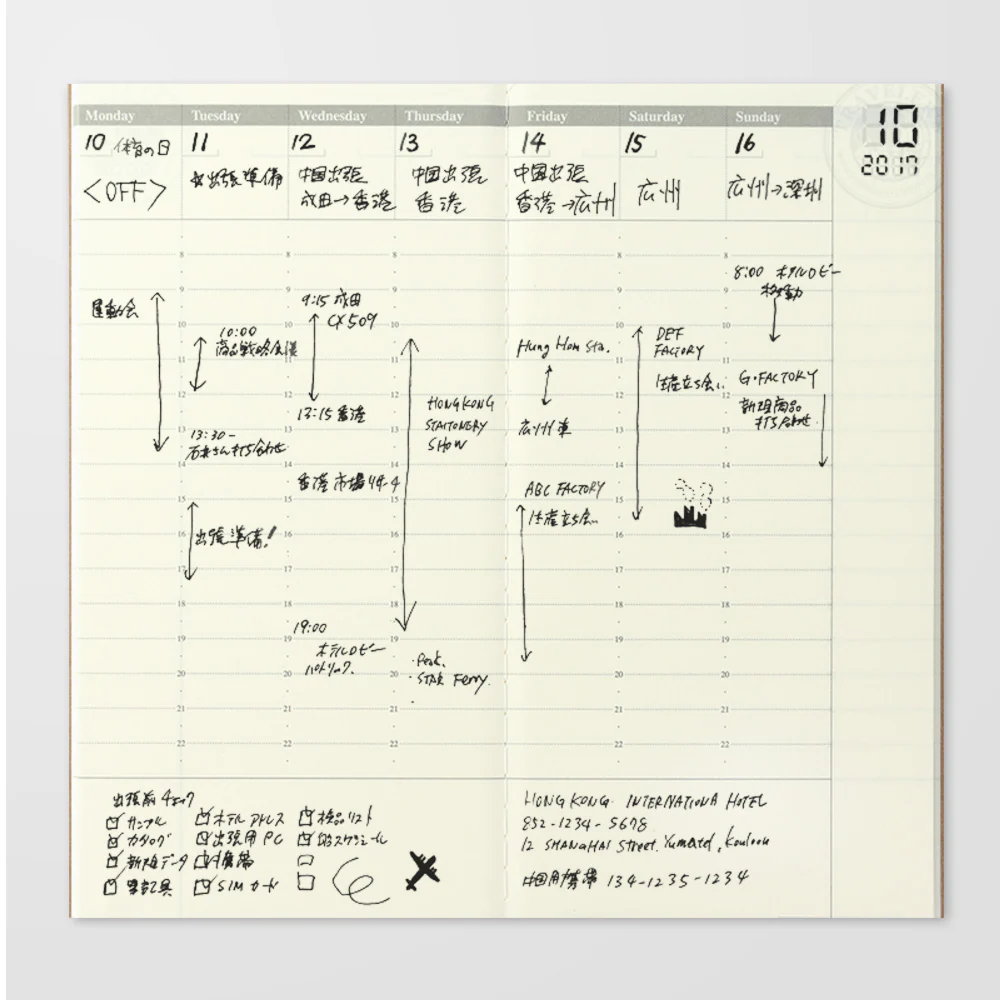 Monday Tuesday Wednesday Thursday Friday Saturday Sunday
10
2017
10 体育の日
<OFF>
11
出張準備
12
中国出張
成田→香港
13
中国出張
香港
14
中国出張
香港→広州
15
広州
16
広州→深圳
8
9
10
11
12
13
14
15
16
17
18
19
20
21
22
運動会
10:00
商品戦略会議
13:30-
石井さん打ち合わせ
出張準備!
9:15 成田
CX509
13:15 香港
香港市場リサーチ
19:00
ホテルロビー
パトリック.
HONGKONG
STATIONERY
SHOW
・Peak.
・STAR Ferry.
Hung Hom Sta.
広州東
ABC FACTORY
生産立ち会い
DEF
FACTORY
生産立ち会い
8:00 ホテルロビー
移動
G・FACTORY
新規商品
打ち合わせ
出張前チェック
サンプル
カタログ
新規データ
筆記具
ホテルアドレス
出張用PC
携帯
SIMカード
検品リスト
スケジュール
HONG KONG INTERNATIONA HOTEL
852-1234-5678
12 SHANGHAI Street. Yumatei, Kouloon
中国用携帯 134-1235-1234